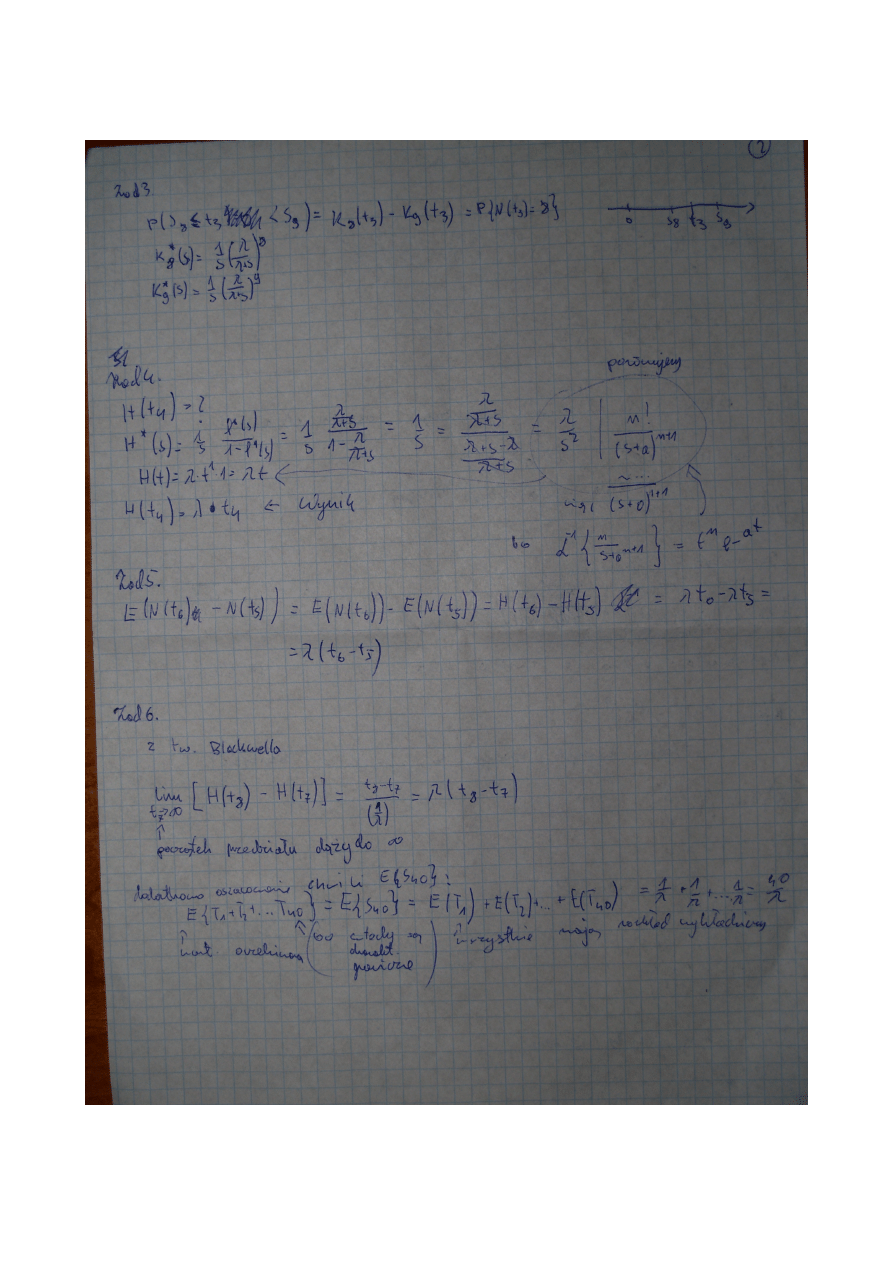 2
Zad 3.
P(S₈ ≤ t₃ < S₉) = K₈(t₃) - K₉(t₃) = P{N(t₃) = 8}
0 S₈ t₃ S₉
K₈*(s) = 1/s (λ/(λ+s))⁸
K₉*(s) = 1/s (λ/(λ+s))⁹
Zad 4.
porównujemy
H(t₄) = ?
H*(s) = 1/s · f*(s)/(1-f*(s)) = 1/s · (λ/(λ+s))/(1 - λ/(λ+s)) = 1/s = (λ/(λ+s))/((λ+s-λ)/(λ+s)) = λ/s² | n!/(s+a)ⁿ⁺¹
H(t) = λ·t¹·1 = λt
(s+0)¹⁺¹
H(t₄) = λ · t₄ ← Wynik
bo ℒ⁻¹{n/s+aⁿ⁺¹} = tⁿ e⁻ᵃᵗ
Zad 5.
E(N(t₆) - N(t₅)) = E(N(t₆)) - E(N(t₅)) = H(t₆) - H(t₅) = λt₆ - λt₅ =
= λ(t₆ - t₅)
Zad 6.
z tw. Blackwella
lim t₇→∞ [H(t₈) - H(t₇)] = (t₈-t₇)/(1/λ) = λ(t₈ - t₇)
↑
początek przedziału dąży do ∞
dodatkowo oszacowanie chwili E{S₄₀}:
E{T₁+T₂+...T₄₀} = E{S₄₀} = E(T₁) + E(T₂) + ... + E(T₄₀) = 1/λ + 1/λ + ... 1/λ = 40/λ
↑ wart. oczekiwana (bo wtedy są ↑ wszystkie mają rozkład wykładniczy